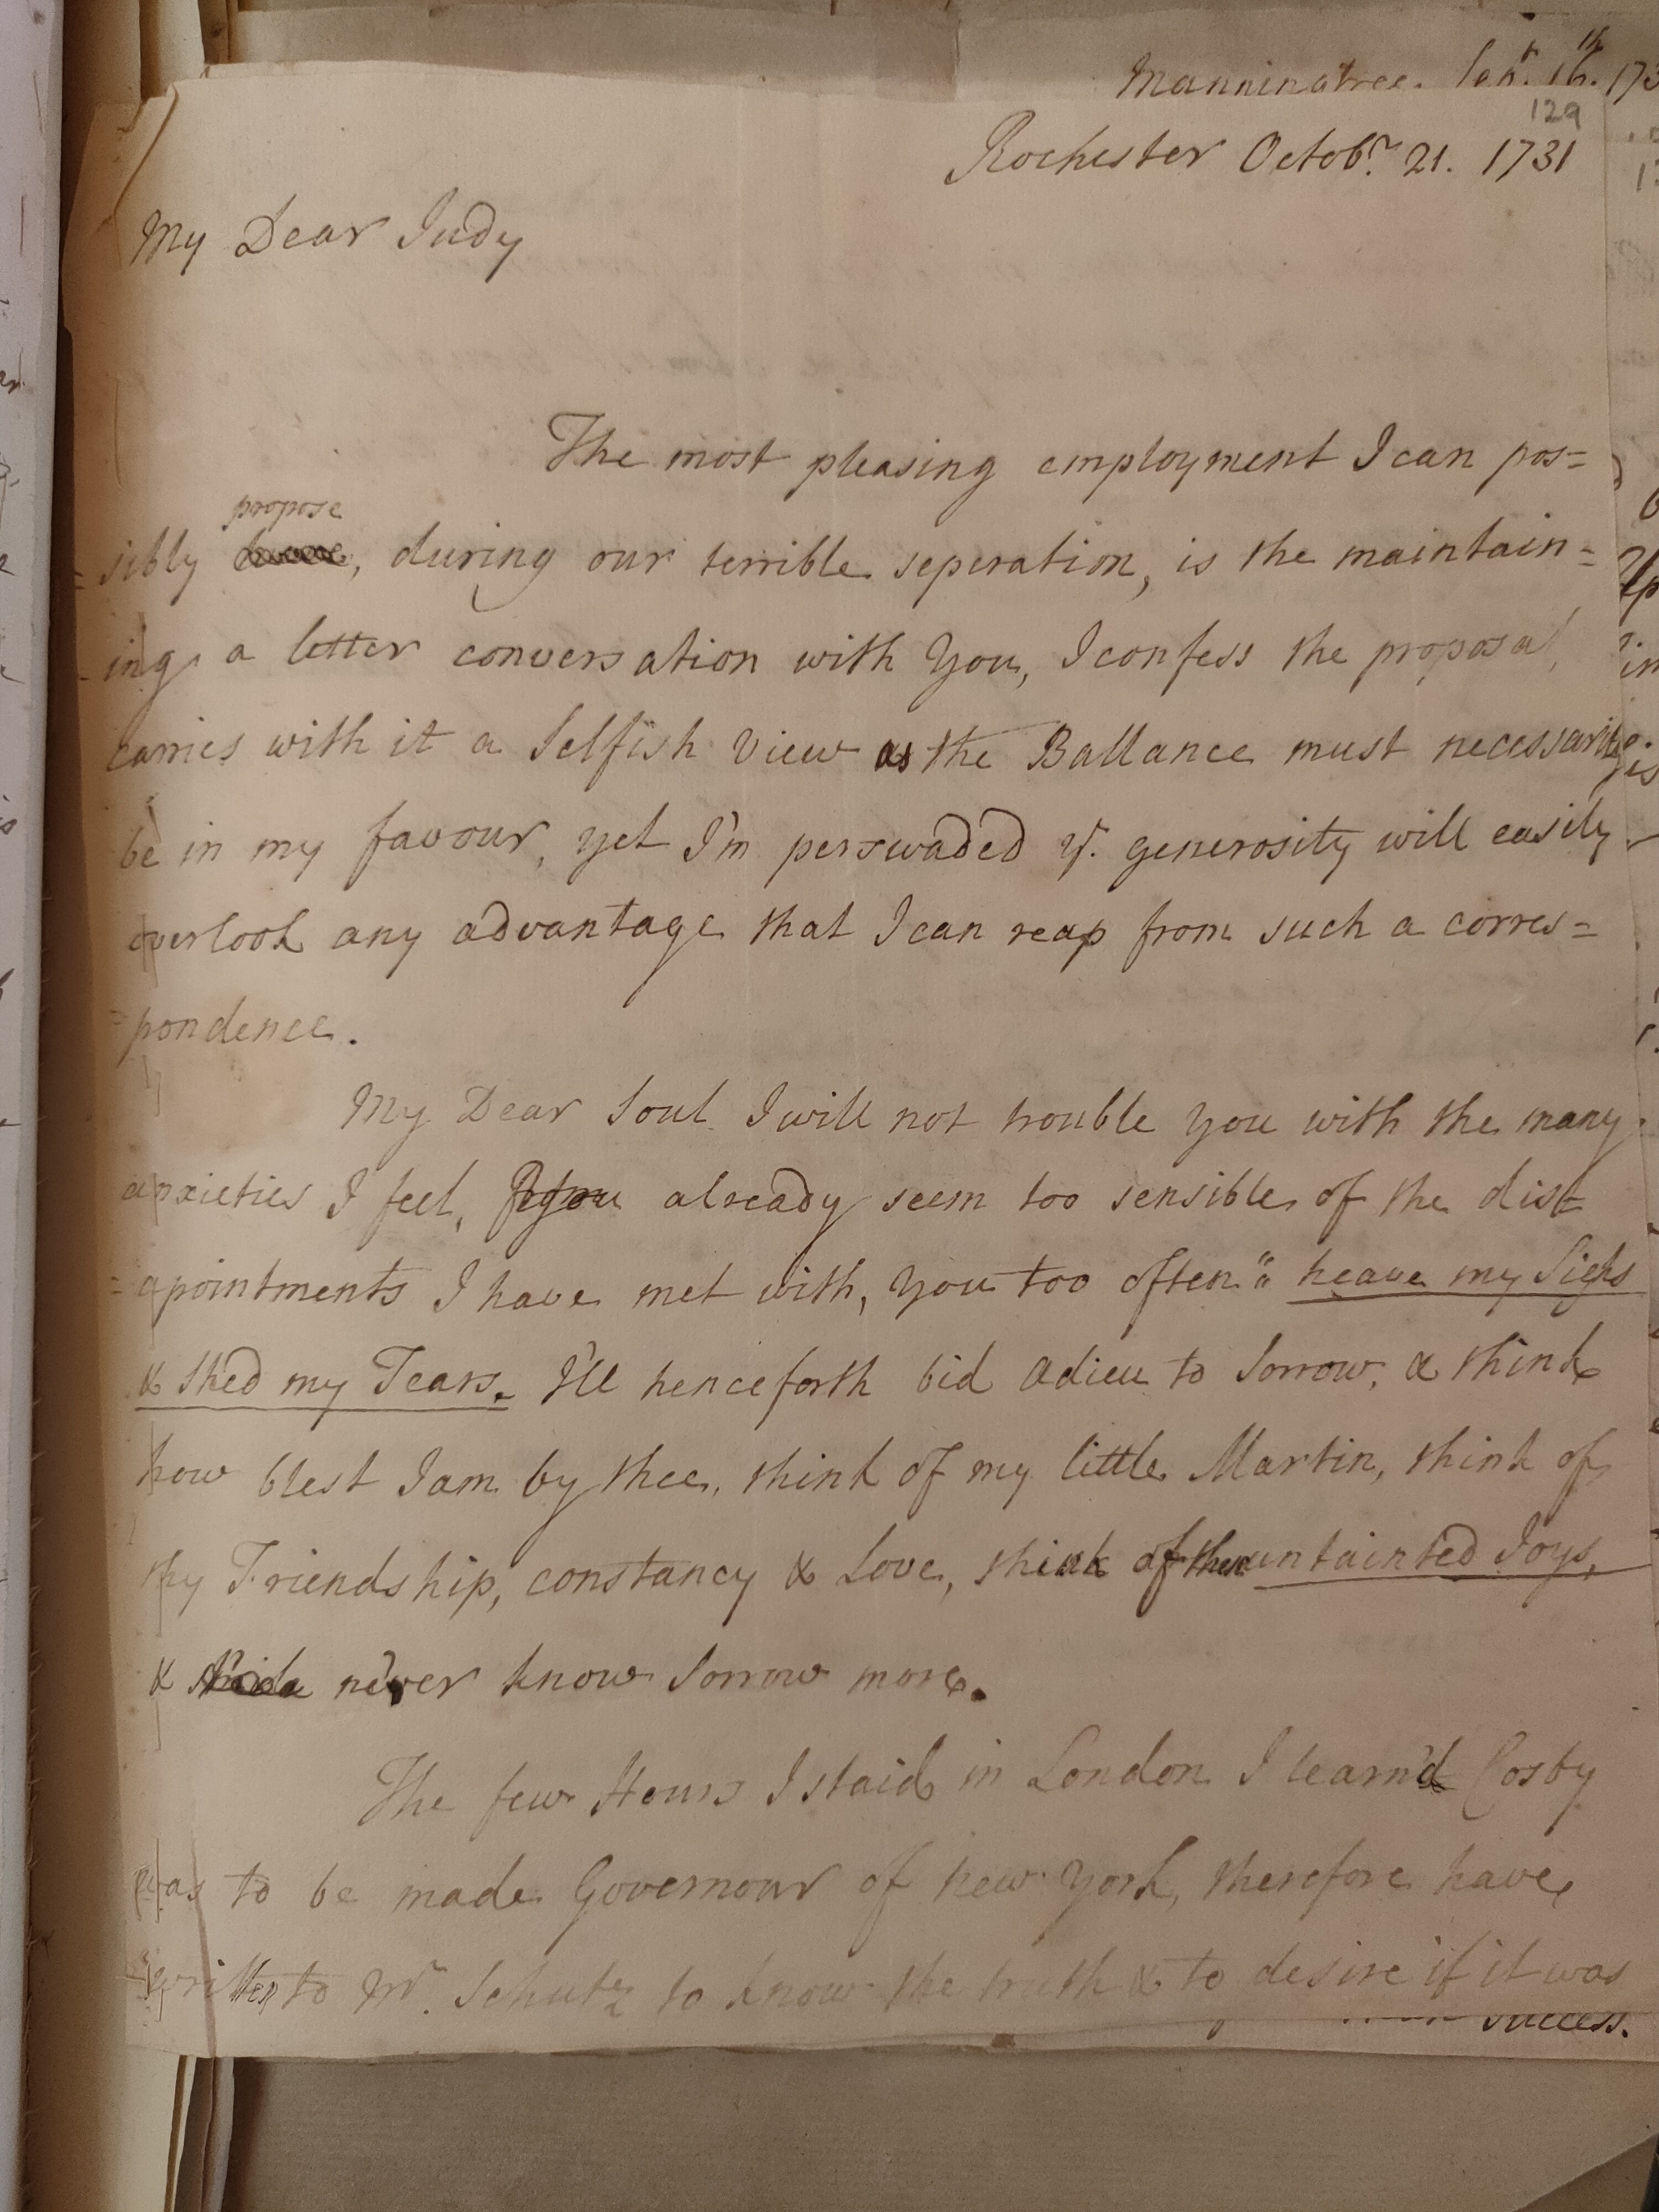 Manningtree. Sepr. 16th. 173
129
Rochester Octobr. 21. 1731
My Dear Judy
The most pleasing employment I can pos=
propose
=sibly , during our terrible seperation, is the maintain=
=ing a letter conversation with You, I confess the proposal
carries with it a Selfish View as the Ballance must necessarily
be in my favour, yet I'm perswaded yr. generosity will easily
overlook any advantage that I can reap from such a corres=
=pondence.
My Dear Soul I will not trouble You with the many
anxieties I feel, you already seem too sensible of the dis=
=apointments I have met with, You too often " heave my Sighs
& shed my Tears. I'll henceforth bid adieu to Sorrow, & think
how blest I am by thee, think of my little Martin, think of
thy Friendship, constancy & Love, think of the untainted Joys,
& never know Sorrow more.
The few Hours I staid in London I learn'd Cosby
was to be made Governour of new York, therefore have
written to Mr. Schutz to know the truth & to desire if it was
success.